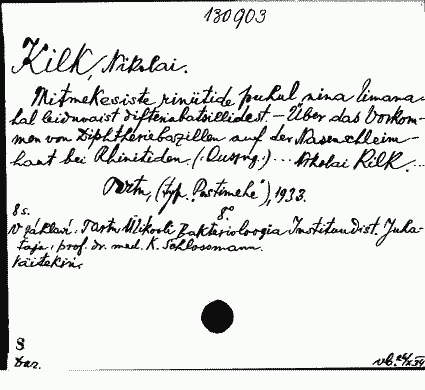 130903
Kilk, Nikolai.
Mitmekesiste riniitide puhul nina limana-
hal leiduvaist difteriabatsillidest. – Über das Vorkom-
men von Diphtheriebazillen auf der Nasenschleim-
haut bei Rhinitiden. (: Auszug.) ... Nikolai Kilk ...
Tartu, (trp. "Postimehe"), 1933.
8 s. 8°
V päklavi: Tartu Ülikooli Bakterioloogia Instituudist. Juha-
taja: prof. dr. med. K. Schlossmann.
Käitekiri.
§
vb. 26/X 34